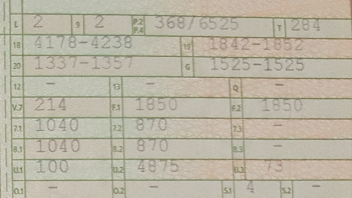 L 2 S 2 P.2 P.4 368/6525 T 284
18 4178-4238 19 1842-1852
20 1337-1357 G 1525-1525
12 - 13 - Q -
V.7 214 F.1 1850 F.2 1850
7.1 1040 7.2 870 7.3 -
8.1 1040 8.2 870 8.3 -
U.1 100 U.2 4875 U.3 73
O.1 - O.2 - S.1 4 S.2 -